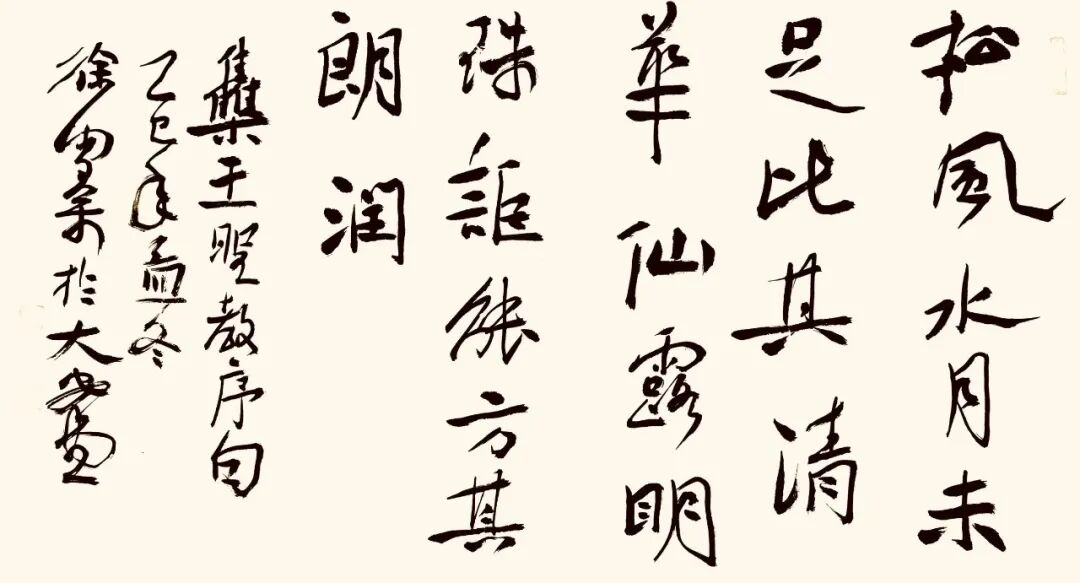 松風水月未
足比其清
華仙露明
珠詎能方其
朗润
集王聖教序句
乙巳年孟冬
徐於大